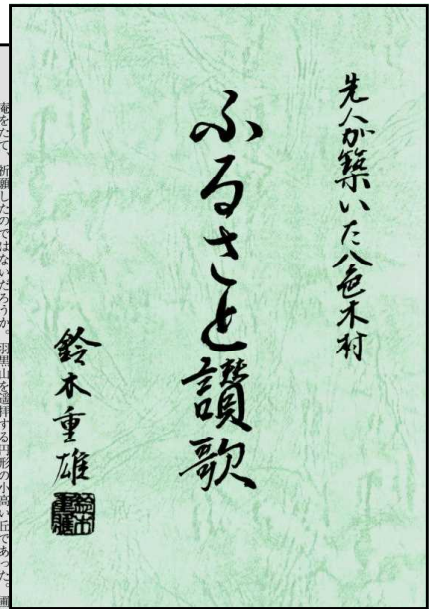 先人が築いた八色木村
ふるさと讃歌
鈴木重雄
鈴木重雄
庵をたて、祈願したのではないだろうか。羽黒山を遥拝する円形の小高い丘であった。